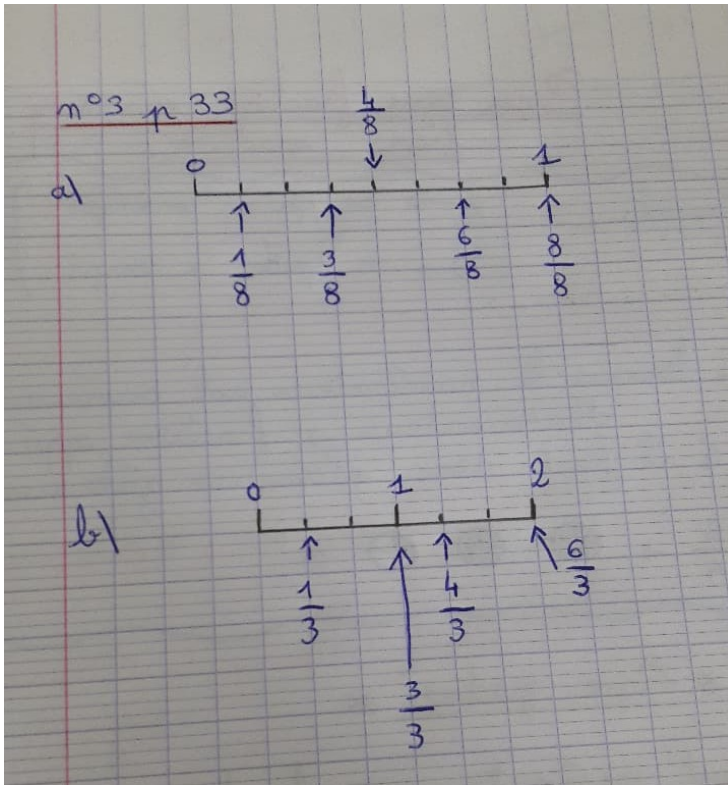 n°3 p 33
4/8
a) 0 1
1/8 3/8 6/8 8/8
b) 0 1 2
1/3 4/3 6/3
3/3